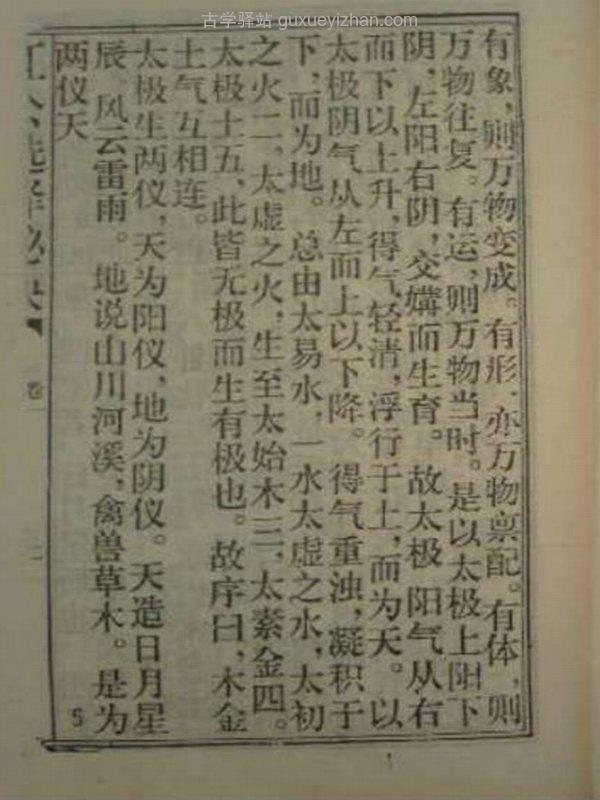 古学驿站 guxueyizhan.com
有象，则万物变成。有形，亦万物禀配。有体，则
万物往复。有运，则万物当时。是以太极上阳下
阴，左阳右阴，交媾而生育。故太极 阳气从右
而下以上升，得气轻清，浮行于上，而为天。以
太极阴气从左而上以下降。得气重浊，凝积于
下，而为地。总由太易水，一水太虚之水，太初
之火二，太虚之火，生至太始木三，太素金四。
太极土五，此皆无极而生有极也。故序曰，木金
土气互相连。
太极生两仪，天为阳仪，地为阴仪。天造日月星
辰，风云雷雨。地说山川河溪，禽兽草木。是为
两仪天
卷
5